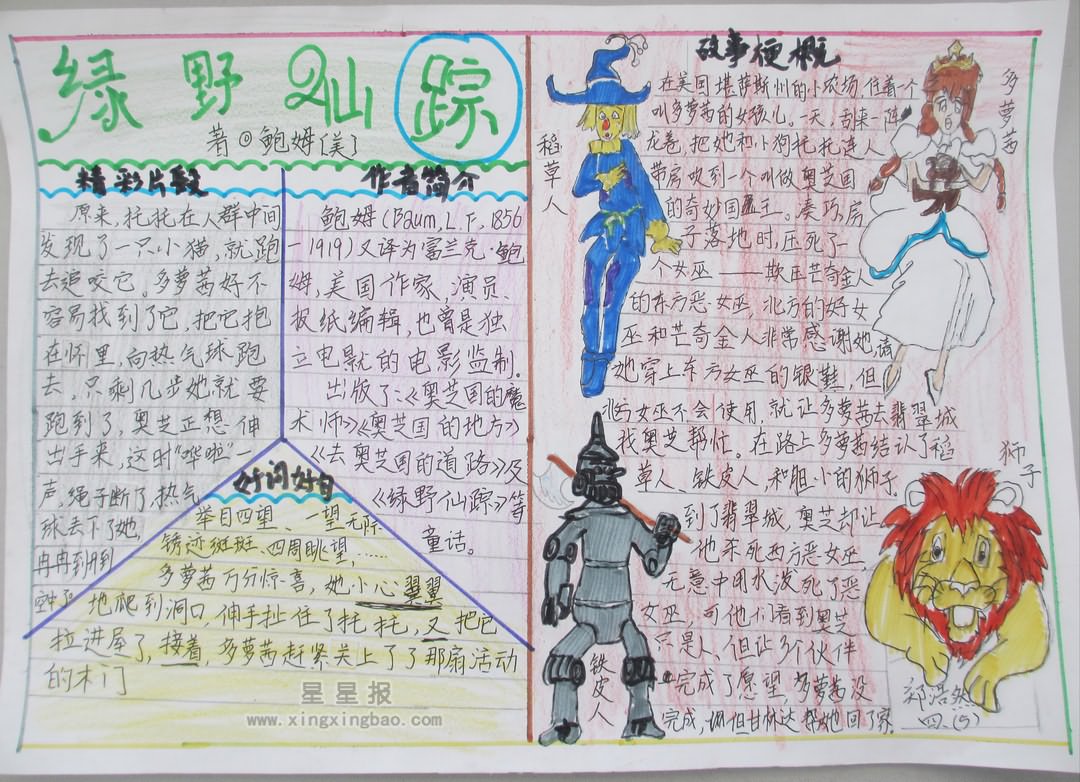 绿野仙踪
著◎鲍姆[美]
精彩片段
原来,托托在人群中间
发现了一只小猫,就跑
去追咬它。多萝茜好不
容易找到了它,把它抱
在怀里,向热气球跑
去,只剩几步她就要
跑到了,奥芝正想伸
出手来,这时“哗啦”一
声,绳子断了,热气
球丢下了她,
冉冉到
作者简介
鲍姆(Baum,L.F,1856
-1919)又译为富兰克·鲍
姆,美国作家,演员、
报纸编辑,也曾是独
立电影的电影监制。
出版了:《奥芝国的魔
术师》《奥芝国的地方》
《去奥芝国的道路》及
《绿野仙踪》等
童话。
好词好句
举目四望、一望无际
锈迹斑斑、四周眺望、……
多萝茜万分惊喜,她小心翼翼
地爬到洞口,伸手扯住了托托,又把它
拉进屋了,接着,多萝茜赶紧关上了了那扇活动
的木门
故事梗概
在美国堪萨斯州的小农场住着一个
叫多萝茜的女孩儿。一天,刮来一阵
龙卷,把她和小狗托托连人
带房吹到一个叫做奥芝国
的奇妙国王。凑巧,房
子落地时,压死了一
个女巫——欺压芒奇金人
的东方恶女巫,北方的好女
巫和芒奇金人非常感谢她,请
她穿上东方女巫的银鞋,但
北方女巫不会使用,就让多萝茜去翡翠城
找奥芝帮忙。在路上多萝茜结识了稻
草人、铁皮人,和胆小的狮子。
到了翡翠城,奥芝却让
他杀死西方恶女巫,
无意中用水泼死了恶
女巫,可他们看到奥芝
只是人、但让3个伙伴
完成了愿望,多萝茜没
完成,甘林达帮她回了家。
稻草人
多萝茜
铁皮人
狮子
郑浩然
四(5)
星星报
www.xingxingbao.com